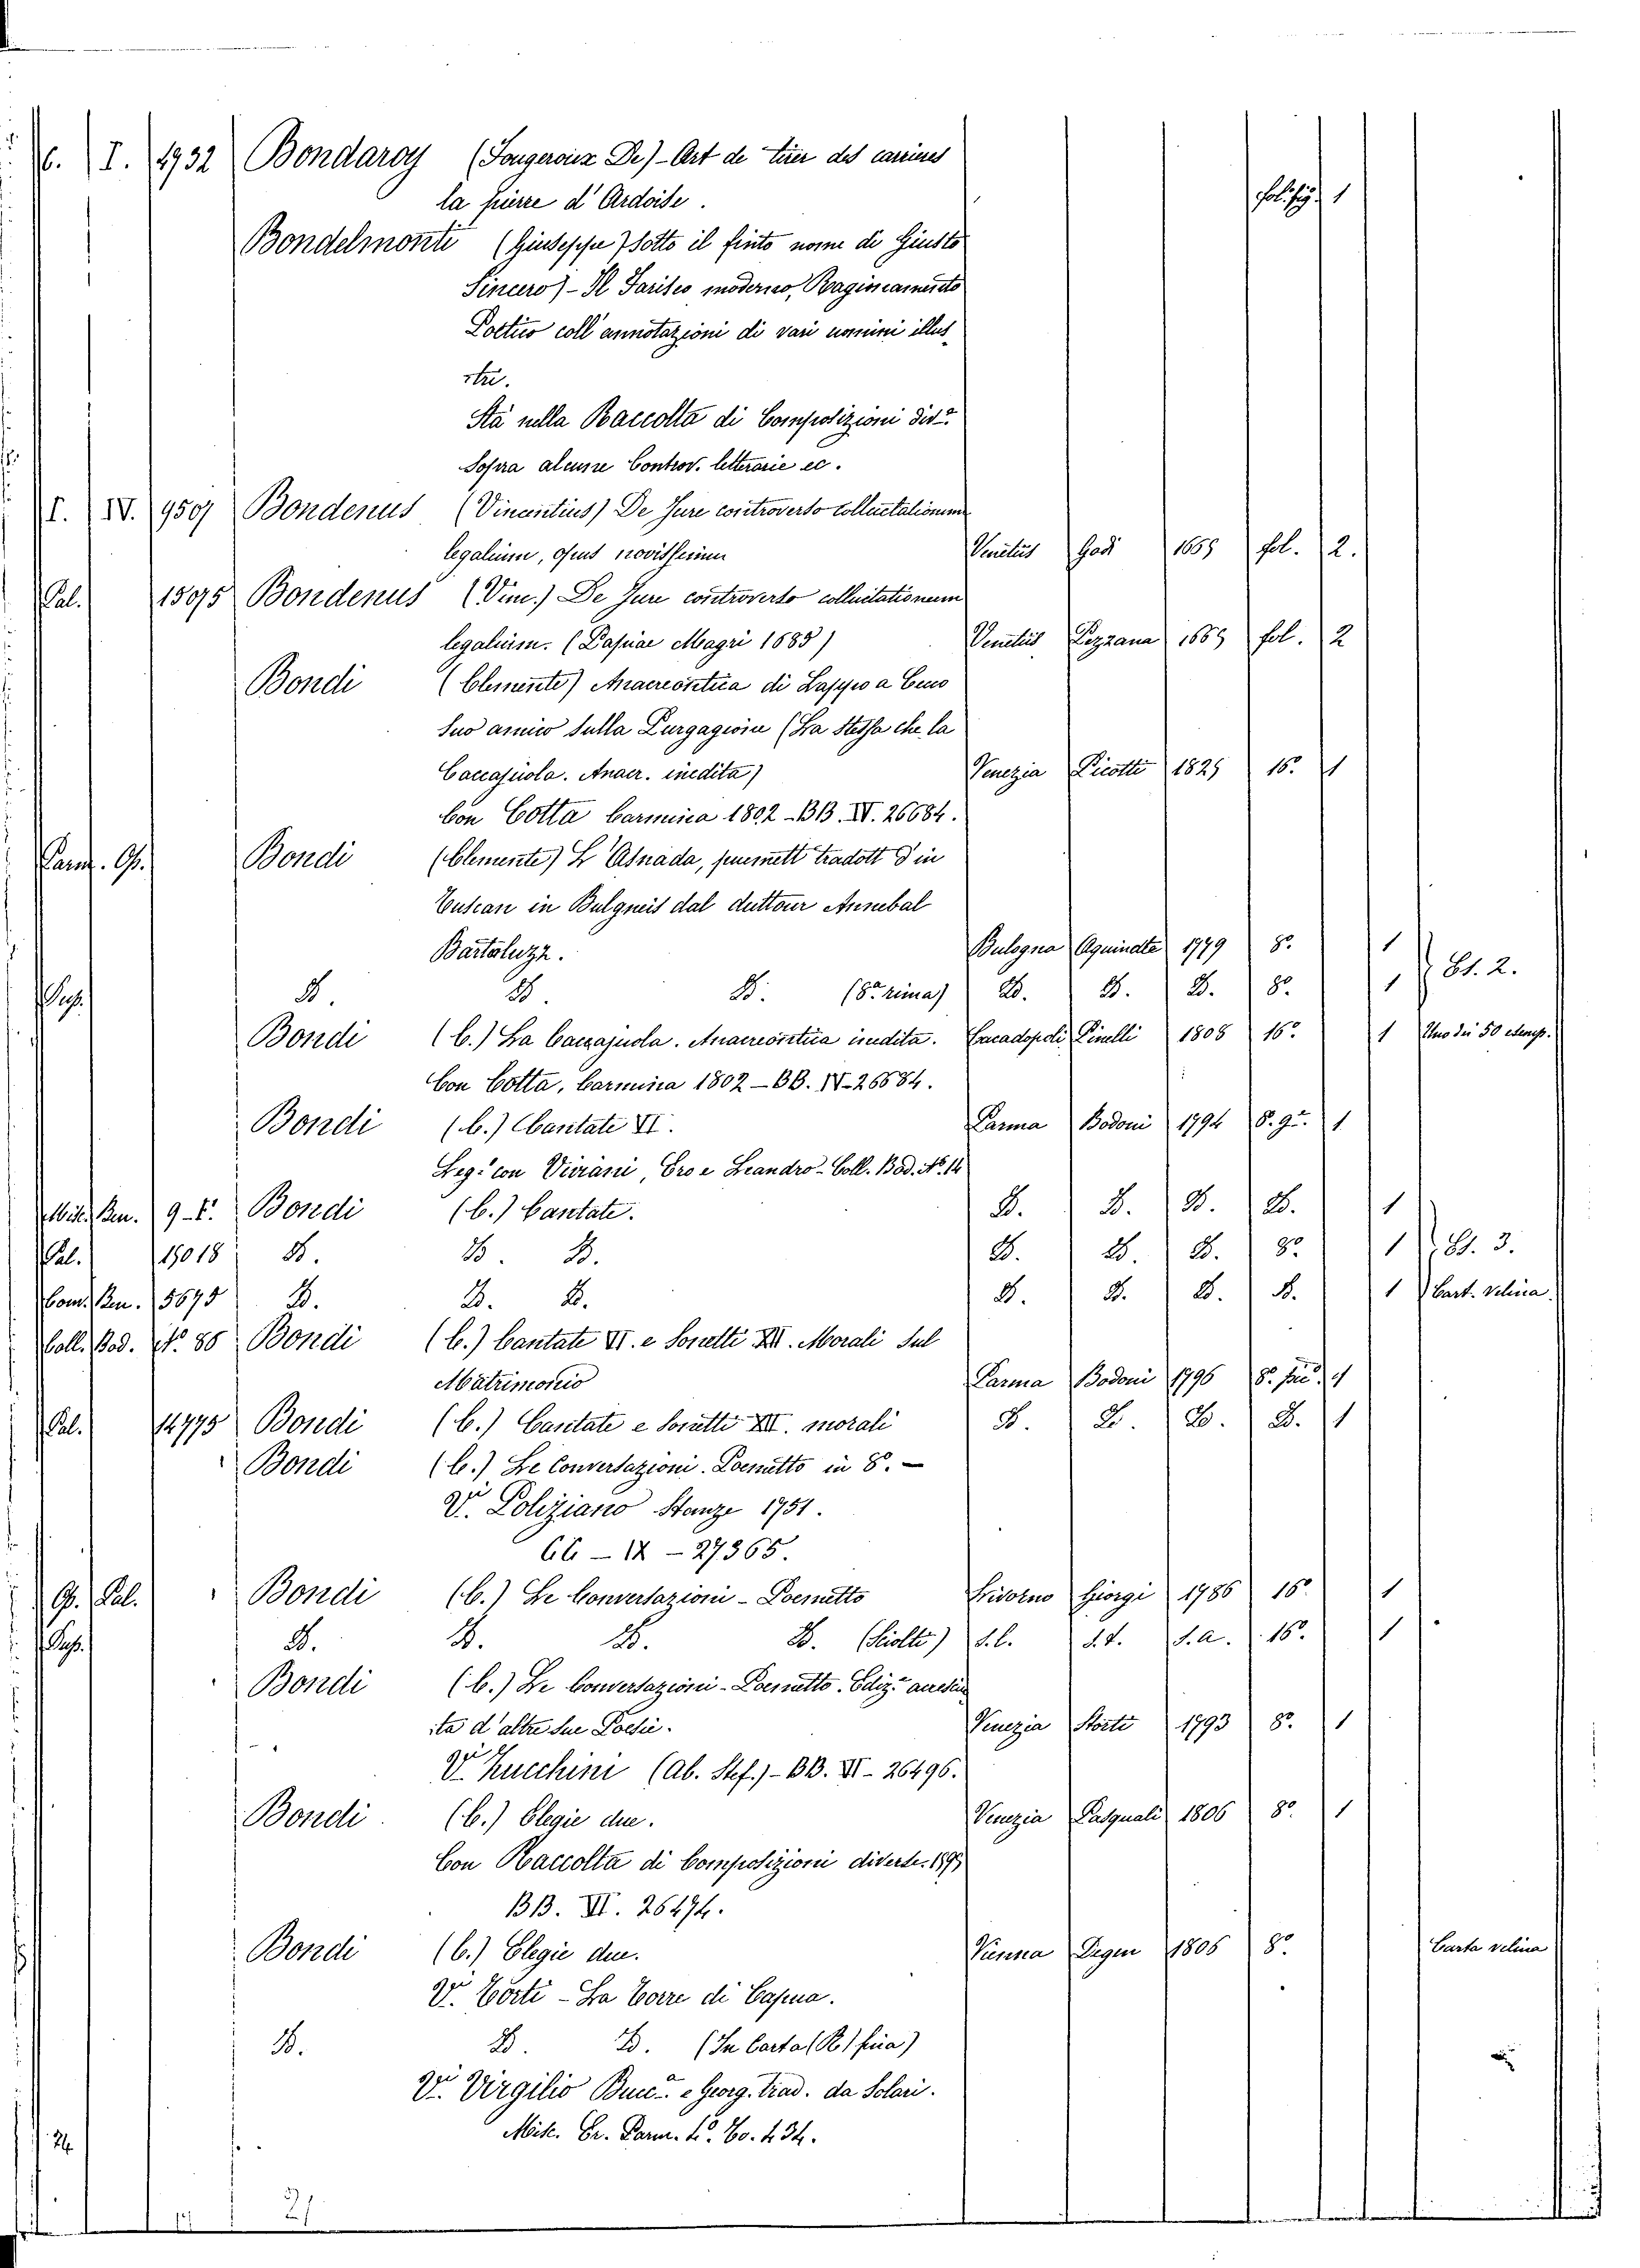 C. I. 4932 Bondaroy (Fougeroux De) - Art de tirer des carrieres
la pierre d'Ardoise. fol. fig. 1
Bondelmonti (Giuseppe) sotto il finto nome di Giusto
Sincero) - Il Fariseo moderno, Raginamento
Poetico coll'annotazioni di vari uomini illus
tri.
Stà nella Raccolta di Composizioni div.e
Sopra alcune Controv. letterarie ec.
I. IV. 9507 Bondenus (Vincentius) De Jure controverso colluctationum
legalium, opus novissimum Venetiis 1659 fol. 2.
Pal. 15075 Bondenus (Vinc.) De Jure controverso colluctationum
legalium. (Papiae Magri 1685) Venetiis Pezzana 1669 fol. 2
Bondi (Clemente) Anacreontica di Lappo a Cuco
suo amico sulla Purgagione (La stessa che la
Caccapiola. Anacr. inedita) Venezia Picotti 1825 16.o 1
Con Cotta Carmina 1802 - BB. IV. 26684.
Parm. G. Bondi (Clemente) L'Asnada, puemett tradott d'in
Tuscan in Bulgneis dal duttour Annebal
Bartoluzz. Bulogna Aquinate 1779 8.o 1
Sup. D. D. D. (8.a rima) D. D. D. 8.o 1 Es. 2.
Bondi (C.) La Caccapiola. Anacreontica inedita. Crisopoli Pinelli 1808 16.o 1 Uno dei 50 esemp.
Con Cotta, Carmina 1802 - BB. IV. 26684.
Bondi (C.) Cantate VI. Parma Bodoni 1794 8.o g.e 1
Leg.o con Viviani, Ero e Leandro - Coll. Bod. N.o 14
Misc. Ben. 9-5. Bondi (C.) Cantate. D. D. D. D. 1
Pal. 15018 D. D. D. D. D. D. 8.o 1 Es. 3.
Com. Ben. 5675 D. D. D. D. D. D. D. 1 Cart. velina.
Coll. Bod. N.o 85 Bondi (C.) Cantate VI. e Sonetti XII. Morali Sul
Matrimonio Parma Bodoni 1796 8.o 1
Pal. 14775 Bondi (C.) Cantate e Sonetti XII. morali D. D. D. D. 1
Bondi (C.) Le Conversazioni. Poemetto in 8.o -
V.i Poliziano Stanze 1751.
66 - IX - 27365.
G. Pal. Bondi (C.) Le Conversazioni - Poemetto Livorno Giorgi 1786 16.o 1
Sup. D. D. D. D. (Sciolti) s.l. s.t. s.a. 16.o 1
Bondi (C.) Le Conversazioni - Poemetto. Ediz.e accresciu
ta d'altre sue Poesie. Venezia Storti 1793 8.o 1
V.i Zucchini (Ab. Stef.) - BB. VI - 26496.
Bondi (C.) Elegie due. Venezia Pasquali 1806 8.o 1
Con Raccolta di Composizioni diverse. 1797
BB. VI. 26494.
Bondi (C.) Elegie due. Vienna Degen 1806 8.o Carta velina
V.i Torti - La Torre di Capua.
D. D. D. (In Carta fina)
V.i Virgilio Buc.a e Georg. trad. da Solari.
Misc. Er. Parm. 4.o To. 434.
24
21